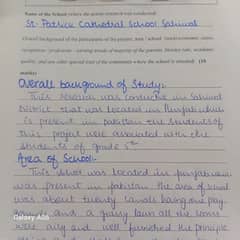 Name of the School (where the action research was conducted)
St. Patrics Cathedral School Sahiwal
Overall background of the participants of the project, area / school (socio-economic status,
occupation/ profession – earning trends of majority of the parents, literacy rate, academic
quality, and any other special trait of the community where the school is situated) (10
marks)
Overall background of Study:-
This research was conducte in Sahiwal
District that was located in Punjab which
is present in pakistan the students of
this project were associated with the
students of grade 5th
Area of School:-
This school was located in punjab
was present in pakistan. the area of school
was about twenty canals having one play
and a grassy lawn all the rooms
were airy and well furnished the principle